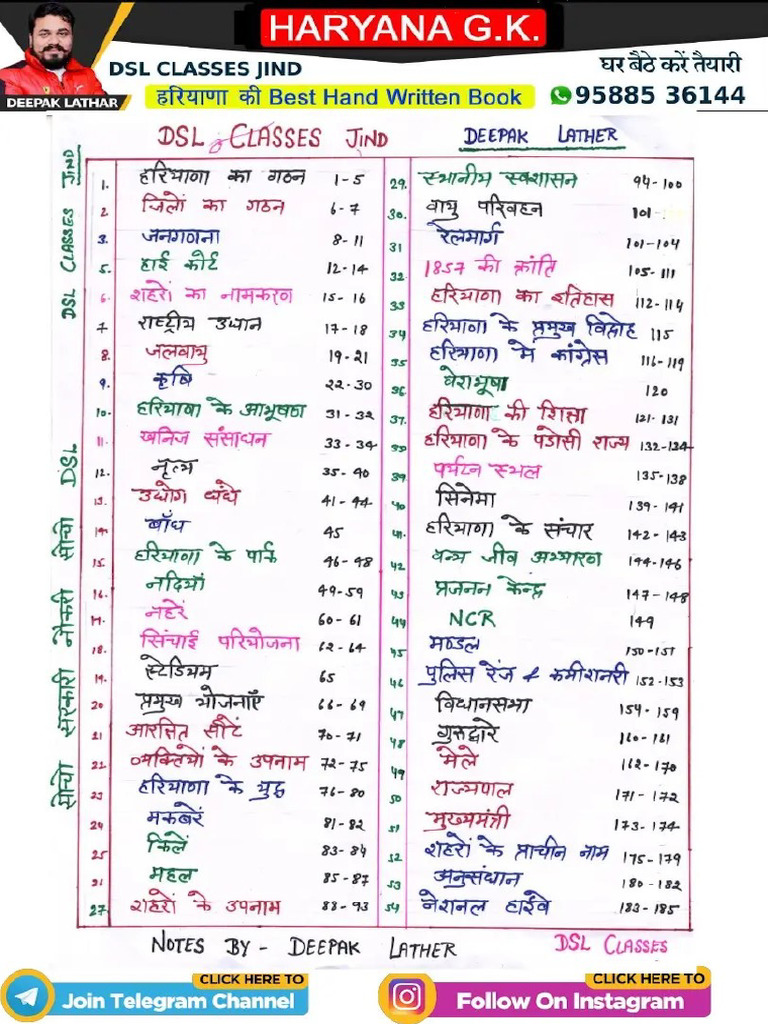 HARYANA G.K.
DSL CLASSES JIND
घर बैठे करें तैयारी
DEEPAK LATHAR
हरियाणा की Best Hand Written Book
95885 36144
DSL CLASSES JIND
DEEPAK LATHER
सोचो सरकारी नौकरी सोचो DSL DSL CLASSES JIND
1. हरियाणा का गठन 1-5
2. जिलों का गठन 6-7
3. जनगणना 8-11
5. हाई कोर्ट 12-14
6. शहरों का नामकरण 15-16
7 राष्ट्रीय उधान 17-18
8. जलवायु 19-21
9. कृषि 22-30
10. हरियाणा के आभूषण 31-32
11. खनिज संसाधन 33-34
12. नृत्य 35-40
13. उद्योग धंधे 41-44
14. बाँध 45
15. हरियाणा के पार्क 46-48
16. नदियाँ 49-59
17. नहरें 60-61
18. सिंचाई परियोजना 62-64
19. स्टेडियम 65
20 प्रमुख योजनाएँ 66-69
21 आरक्षित सीटें 70-71
22. व्यक्तियों के उपनाम 72-75
23 हरियाणा के युद्ध 76-80
24 मकबरें 81-82
25 किलें 83-84
21 महल 85-87
27. शहरों के उपनाम 88-93
29. स्थानीय स्वशासन 94-100
30. वायु परिवहन 101
31 रेलमार्ग 101-104
32 1857 की क्रांति 105-111
33 हरियाणा का इतिहास 112-114
34 हरियाणा के प्रमुख विद्रोह 115
35 हरियाणा में कांग्रेस 116-119
36 वेशभूषा 120
37. हरियाणा की शिक्षा 121-131
39 हरियाणा के पडोसी राज्य 132-134
39 पर्यटन स्थल 135-138
40 सिनेमा 139-141
41. हरियाणा के संचार 142-143
42 वन्य जीव अभ्यारण 144-146
43 प्रजनन केन्द्र 147-148
44 NCR 149
45 मण्डल 150-151
46 पुलिस रेंज & कमीशनरी 152-153
47 विधानसभा 154-159
48 गुरुद्वारे 160-161
49 मेले 162-170
50 राज्यपाल 171-172
51 मुख्यमंत्री 173-174
52 शहरों के प्राचीन नाम 175-179
53 अनुसंधान 180-182
54 नेशनल हाईवे 183-185
NOTES BY - DEEPAK LATHER
DSL CLASSES
CLICK HERE TO
Join Telegram Channel
CLICK HERE TO
Follow On Instagram